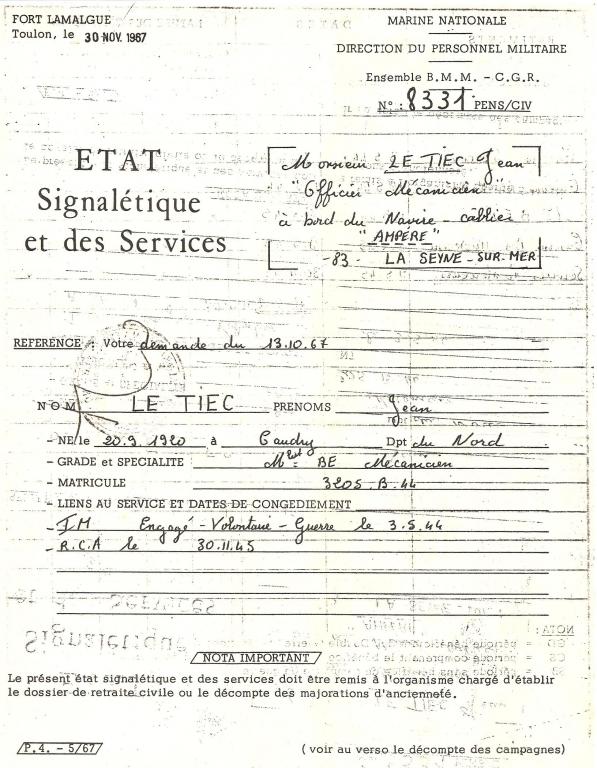 FORT LAMALGUE
Toulon, le 30 NOV. 1967
MARINE NATIONALE
DIRECTION DU PERSONNEL MILITAIRE
Ensemble B.M.M. - C.G.R.
N° : 8331 PENS/CIV
ETAT
Signalétique
et des Services
Monsieur LE TIEC Jean
"Officier Mécanicien"
à bord du Navire-câblier
"AMPÈRE"
-83- LA SEYNE-SUR-MER
REFERENCE : Votre demande du 13.10.67
NOM LE TIEC PRENOMS Jean
- NE/le 20.9.1920 à Caudry Dpt du Nord
- GRADE et SPECIALITE BE Mécanicien
- MATRICULE 3205.B.44
- LIENS AU SERVICE ET DATES DE CONGEDIEMENT
- IM Engagé-Volontaire-Guerre le 3.5.44
- R.C.A le 30.11.45
NOTA IMPORTANT
Le présent état signalétique et des services doit être remis à l'organisme chargé d'établir
le dossier de retraite civile ou le décompte des majorations d'ancienneté.
P.4. - 5/67
( voir au verso le décompte des campagnes)